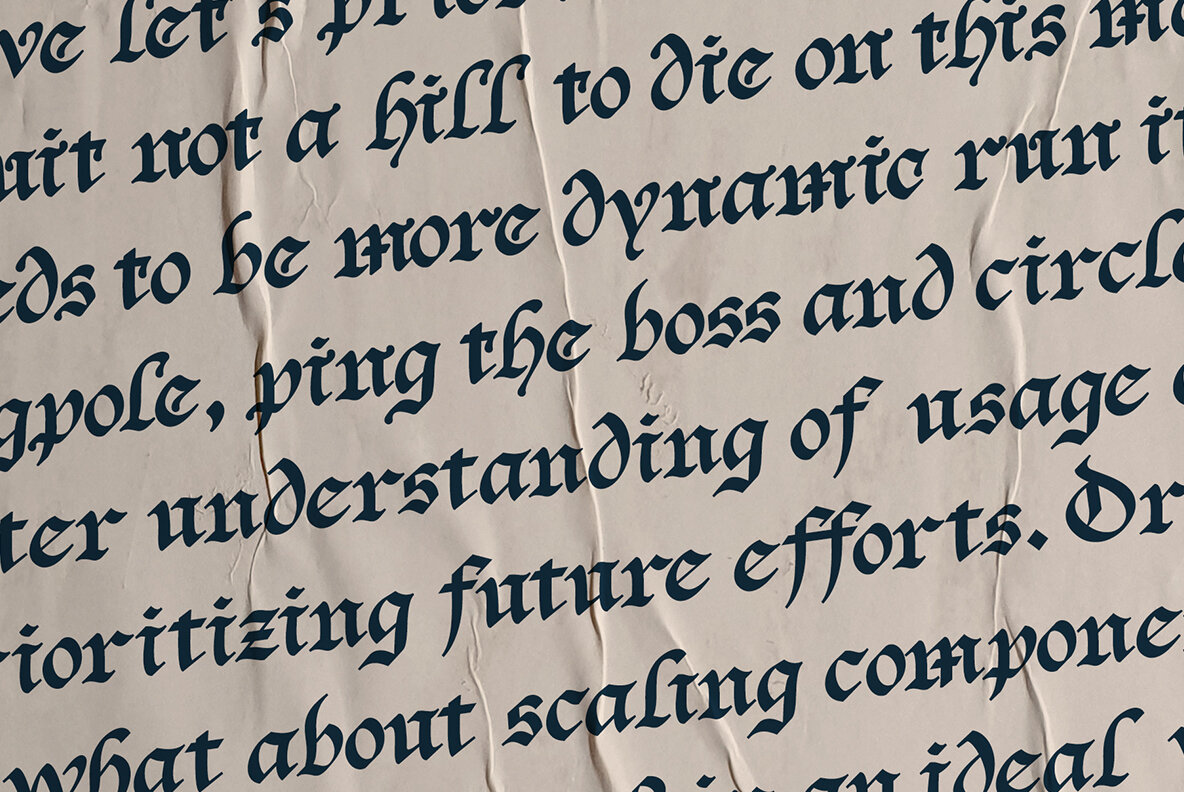 ve let's
uit not a hill to die on this mo
eds to be more dynamic run it
gpole, ping the boss and circle
ter understanding of usage
rioritizing future efforts. Dr
what about scaling compone
is an ideal